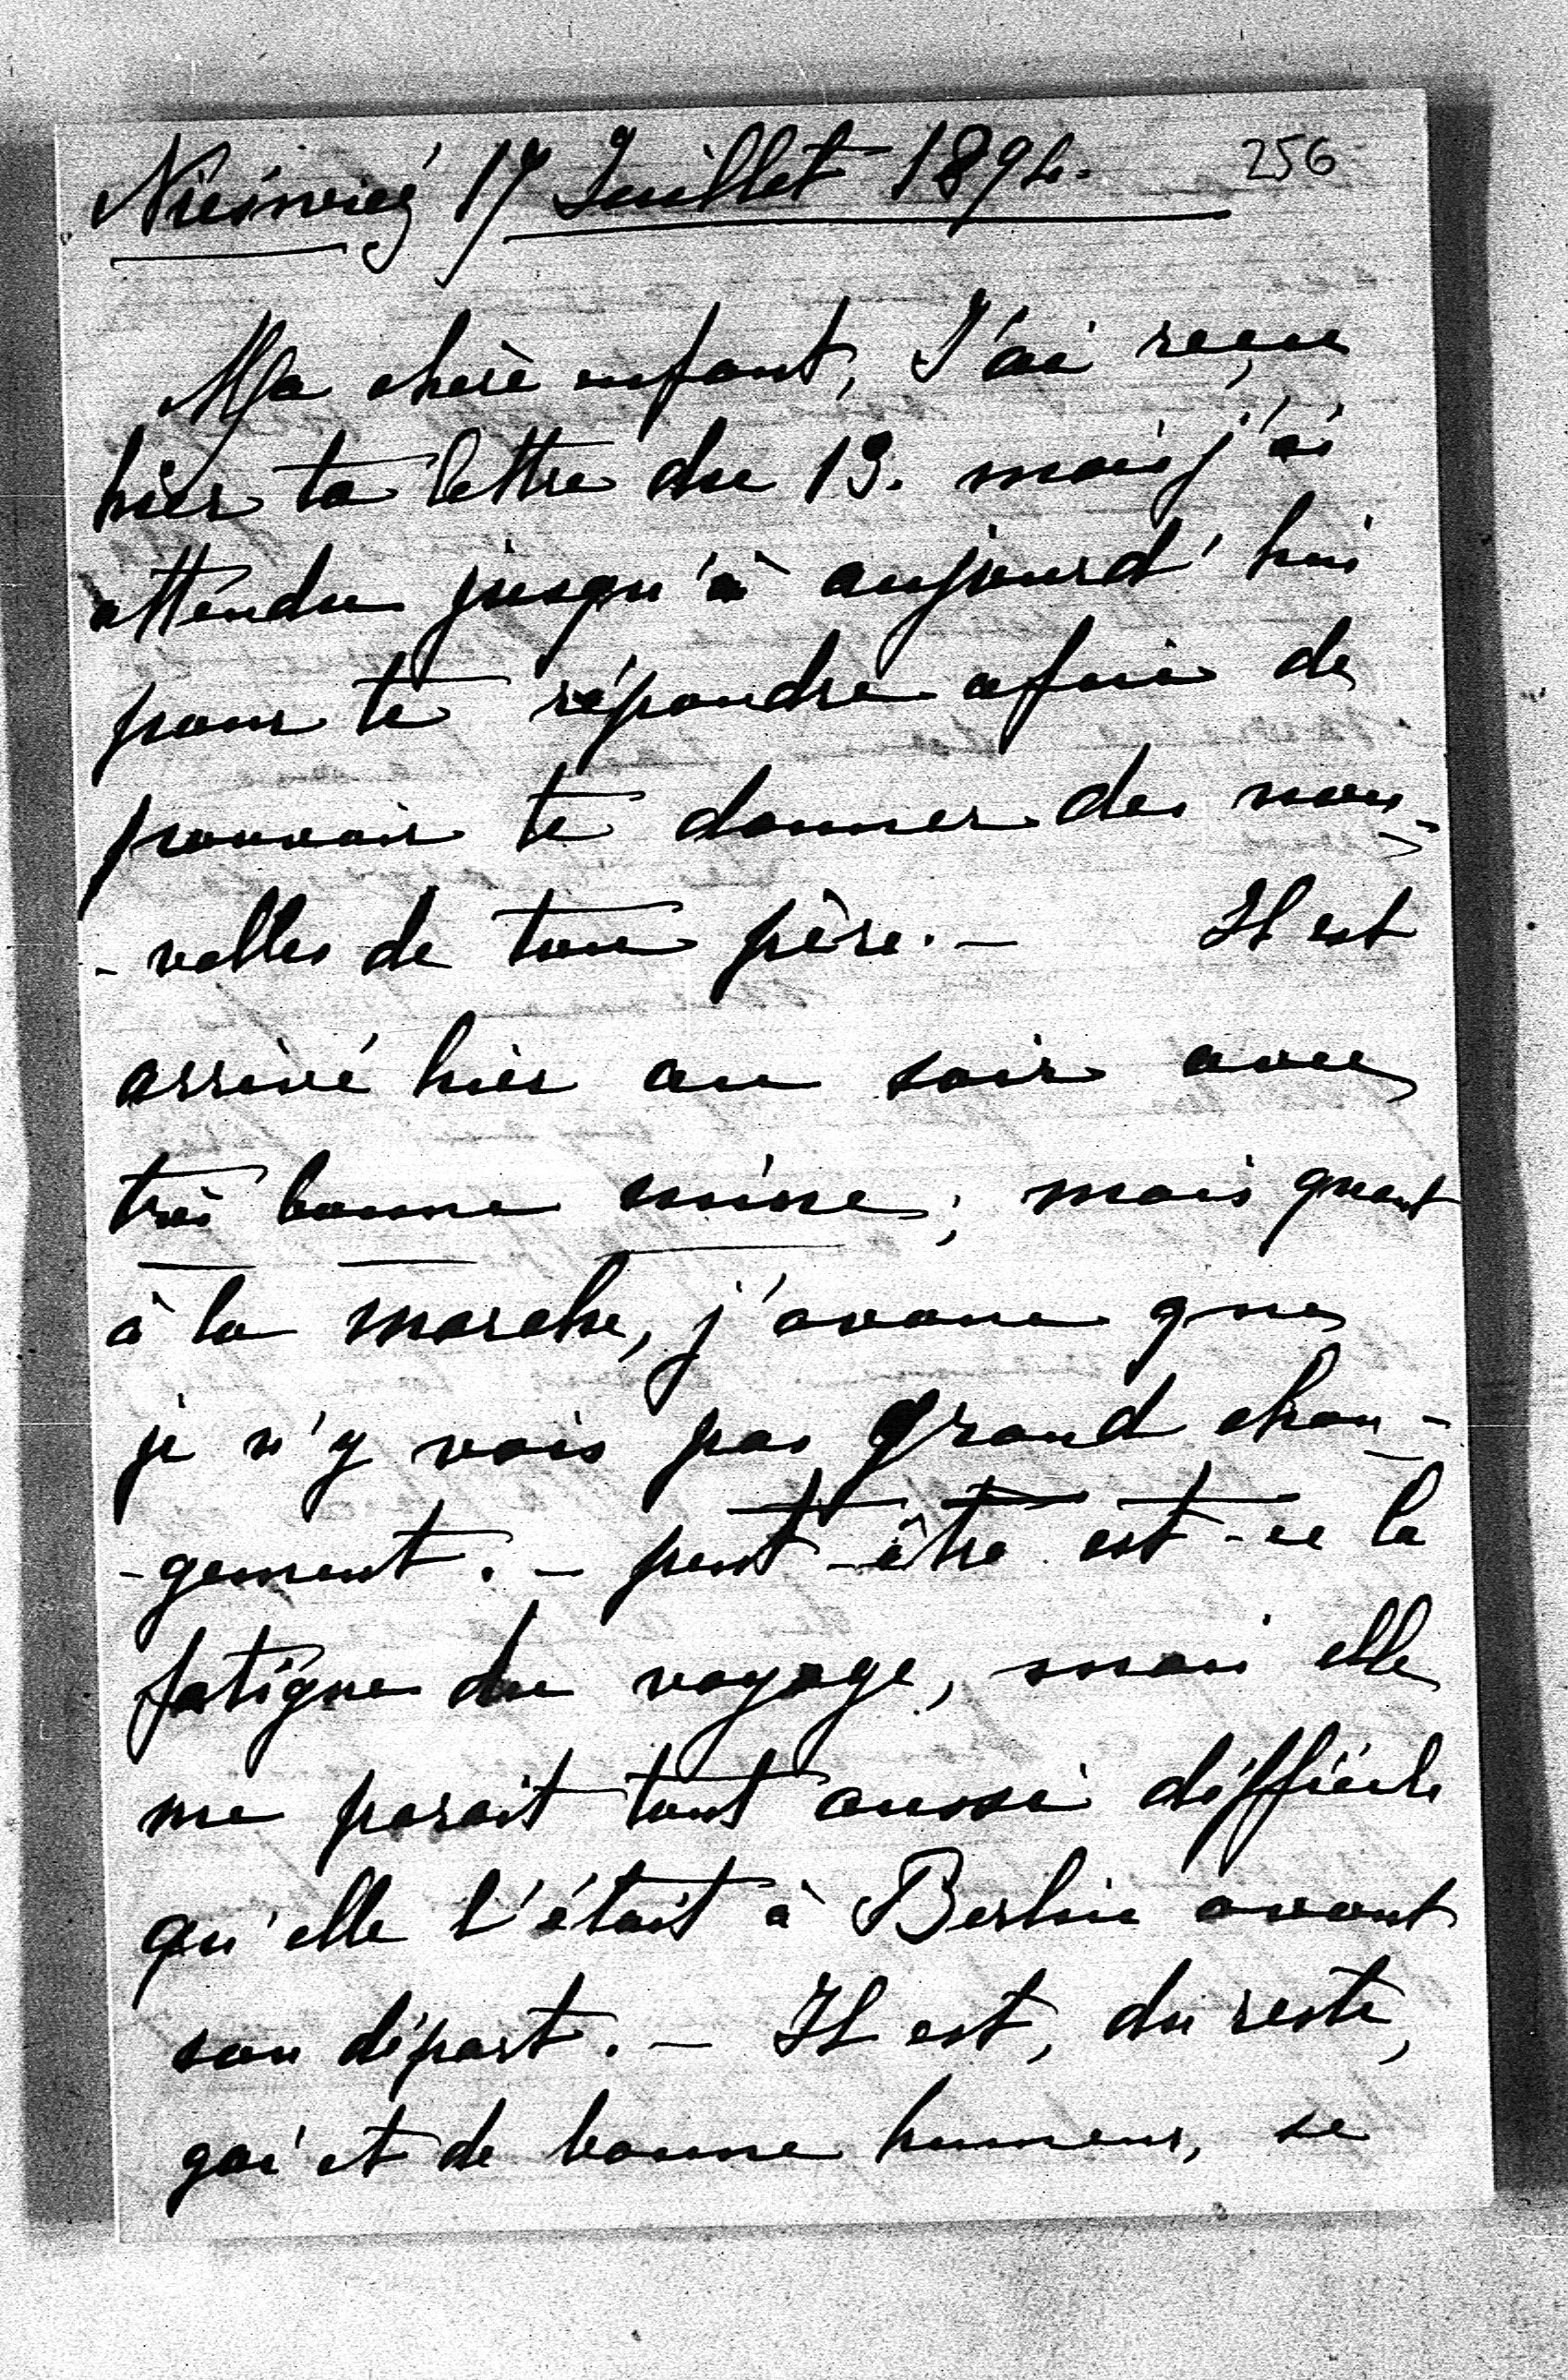 Nieśwież 17 Juillet 1894.
256
Ma chère enfant, J'ai reçue
hier ta lettre du 13. mais j'ai
attendu jusqu'à aujourd'hui
pour te répondre afin de
pouvoir te donner des nou-
-velles de ton père. — Il est
arrivé hier au soir avec
très bonne mine; mais quant
à la marche, j'avoue que
je n'y vois pas grand chan-
-gement. — peut-être est-ce la
fatigue du voyage, mais elle
me parait tout aussi difficile
qu'elle l'était à Berlin avant
son départ. — Il est, du reste,
gai et de bonne humeur, se